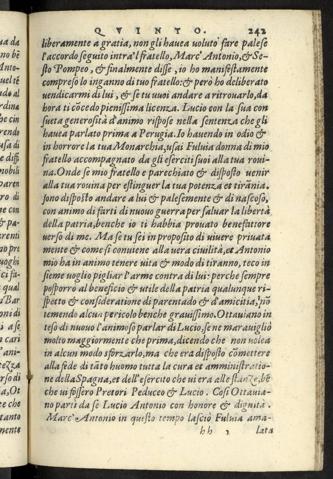 QVINTO. 242
liberamente a gratia, non gli havea voluto fare palese
l'accordo seguito intra'l fratello, Marc' Antonio, & Se-
sto Pompeo, & finalmente disse, io ho manifestamente
compreso lo inganno di tuo fratello: & però ho deliberato
vendicarmi di lui, & se tu vuoi andare a ritrovarlo, da
hora ti cōcedo pienissima licenza. Lucio con la sua con
sueta generosità d'animo rispose nella sentenza che gli
havea parlato prima a Perugia. Io havendo in odio &
in horrore la tua Monarchia, usai Fulvia donna di mio
fratello accompagnato da gli eserciti suoi alla tua roui
na. Onde se mio fratello è parechiato & disposto venir
alla tua rovina per estinguer la tua potenza et tirānia.
sono disposto andare a lui & palesemente & di nascoso,
con animo di farti di nuovo guerra per salvar la libertà
della patria, benche io ti habbia provato benefattore
verso di me. Ma se tu sei in proposito di vivere privata
mente & come si conviene alla vera civilità, et Antonio
mio ha in animo tenere vita & modo di tiranno, teco in
sieme voglio pigliar l'arme contra di lui: perche sempre
posporro al beneficio & utile della patria qualunque ri-
spetto & consideratione di parentado & d'amicitia, nō
temendo alcun pericolo benche gravissimo. Ottaviano in
teso di nuovo l'animoso parlar di Lucio, se ne maravigliò
molto maggiormente che prima, dicendo che non volea
in alcun modo sforzarlo, ma che era disposto cōmettere
alla fede di tāto huomo tutta la cura et amministratio-
ne della Spagna, et dell'esercito che vi era alle stanze, bē
che vi fossero Pretori Peduceo & Lucio. Cosi Ottavia-
no parti da se Lucio Antonio con honore & dignità.
Marc' Antonio in questo tempo lasciò Fulvia ama-
hh 2 lata